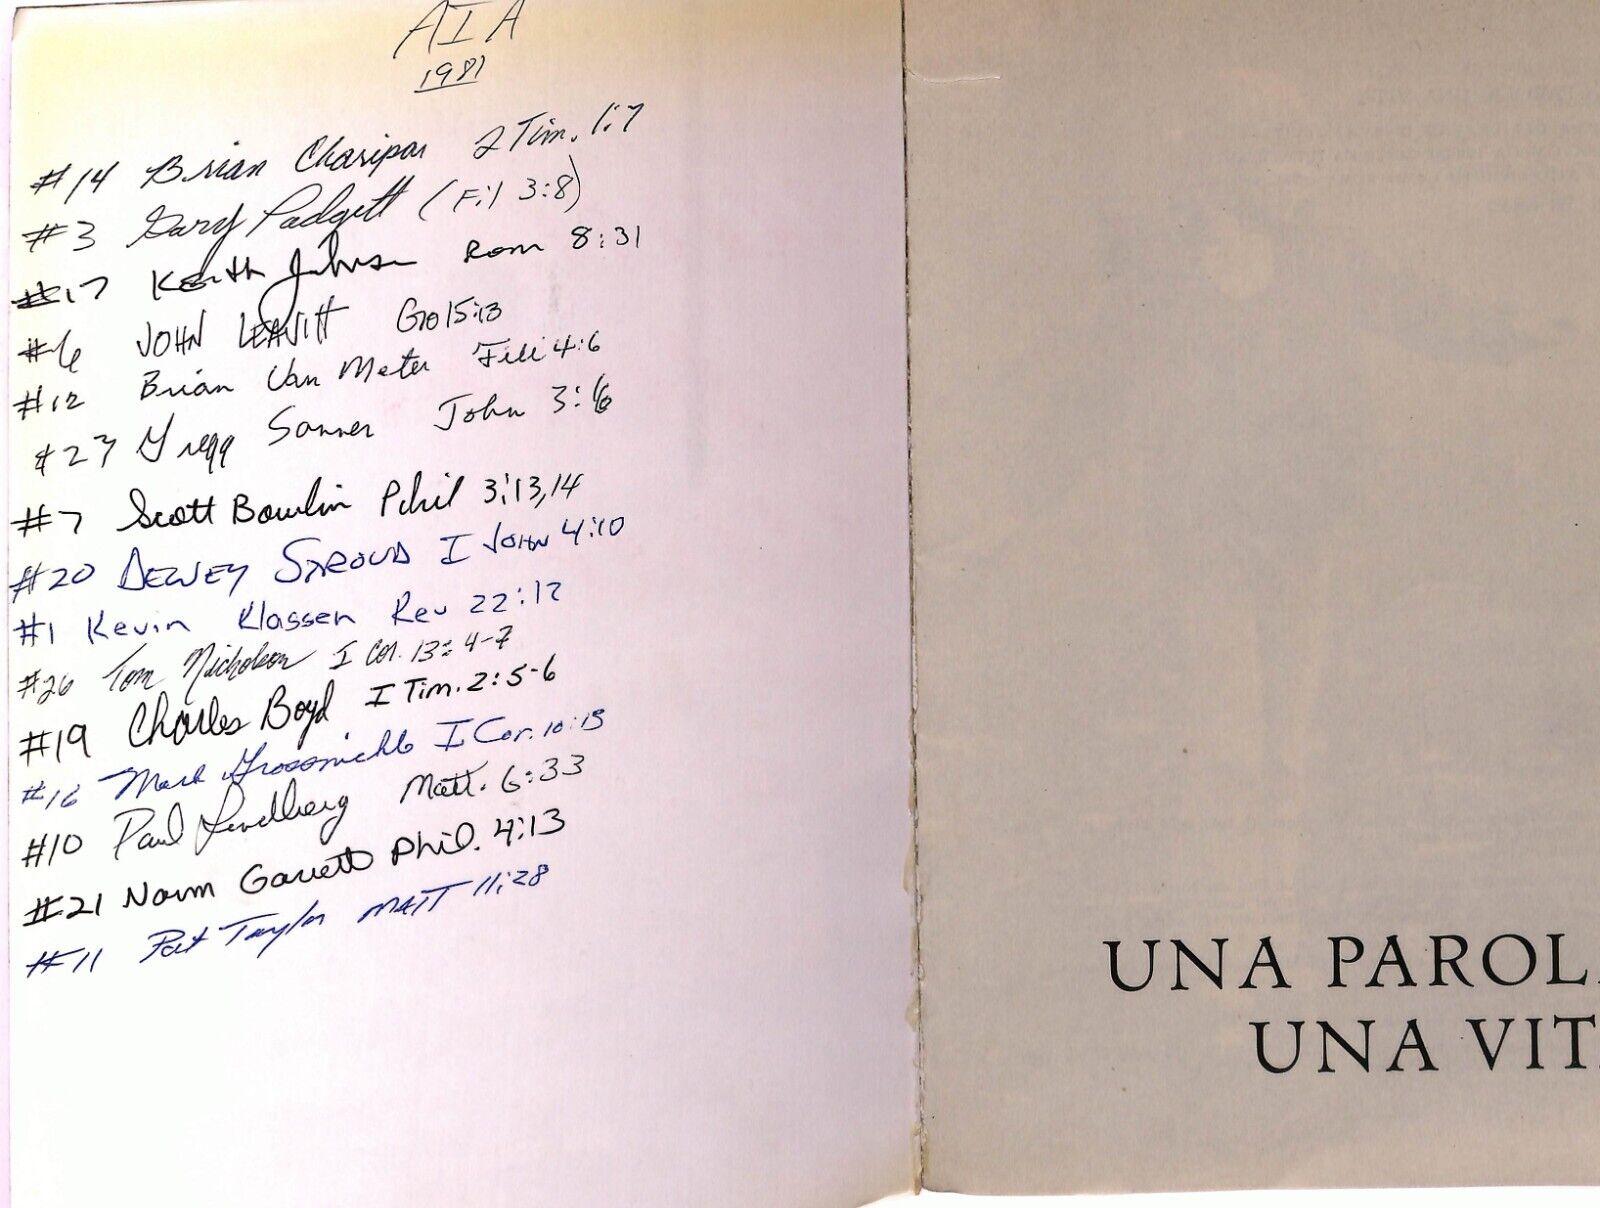 AIA
1981
#14 Brian Charipar 2 Tim. 1:7
#3 Gary Padgett (Fil 3:8)
#17 Keith Johnson Rom 8:31
#6 JOHN LEAVITT Gio 15:13
#12 Brian Van Meter Fili 4:6
#23 Gregg Sanner John 3:16
#7 Scott Bowlin Phil 3:13,14
#20 DEWEY STROUD I JOHN 4:10
#1 Kevin Klassen Rev 22:12
#26 Tom Nicholson I Cor. 13:4-7
#19 Charles Boyd I Tim. 2:5-6
#16 Mark Grossnickle I Cor. 10:13
#10 Paul Lindberg Matt. 6:33
#21 Norm Garrett Phil. 4:13
#11 Pat Taylor MATT 11:28
UNA PAROL
UNA VIT